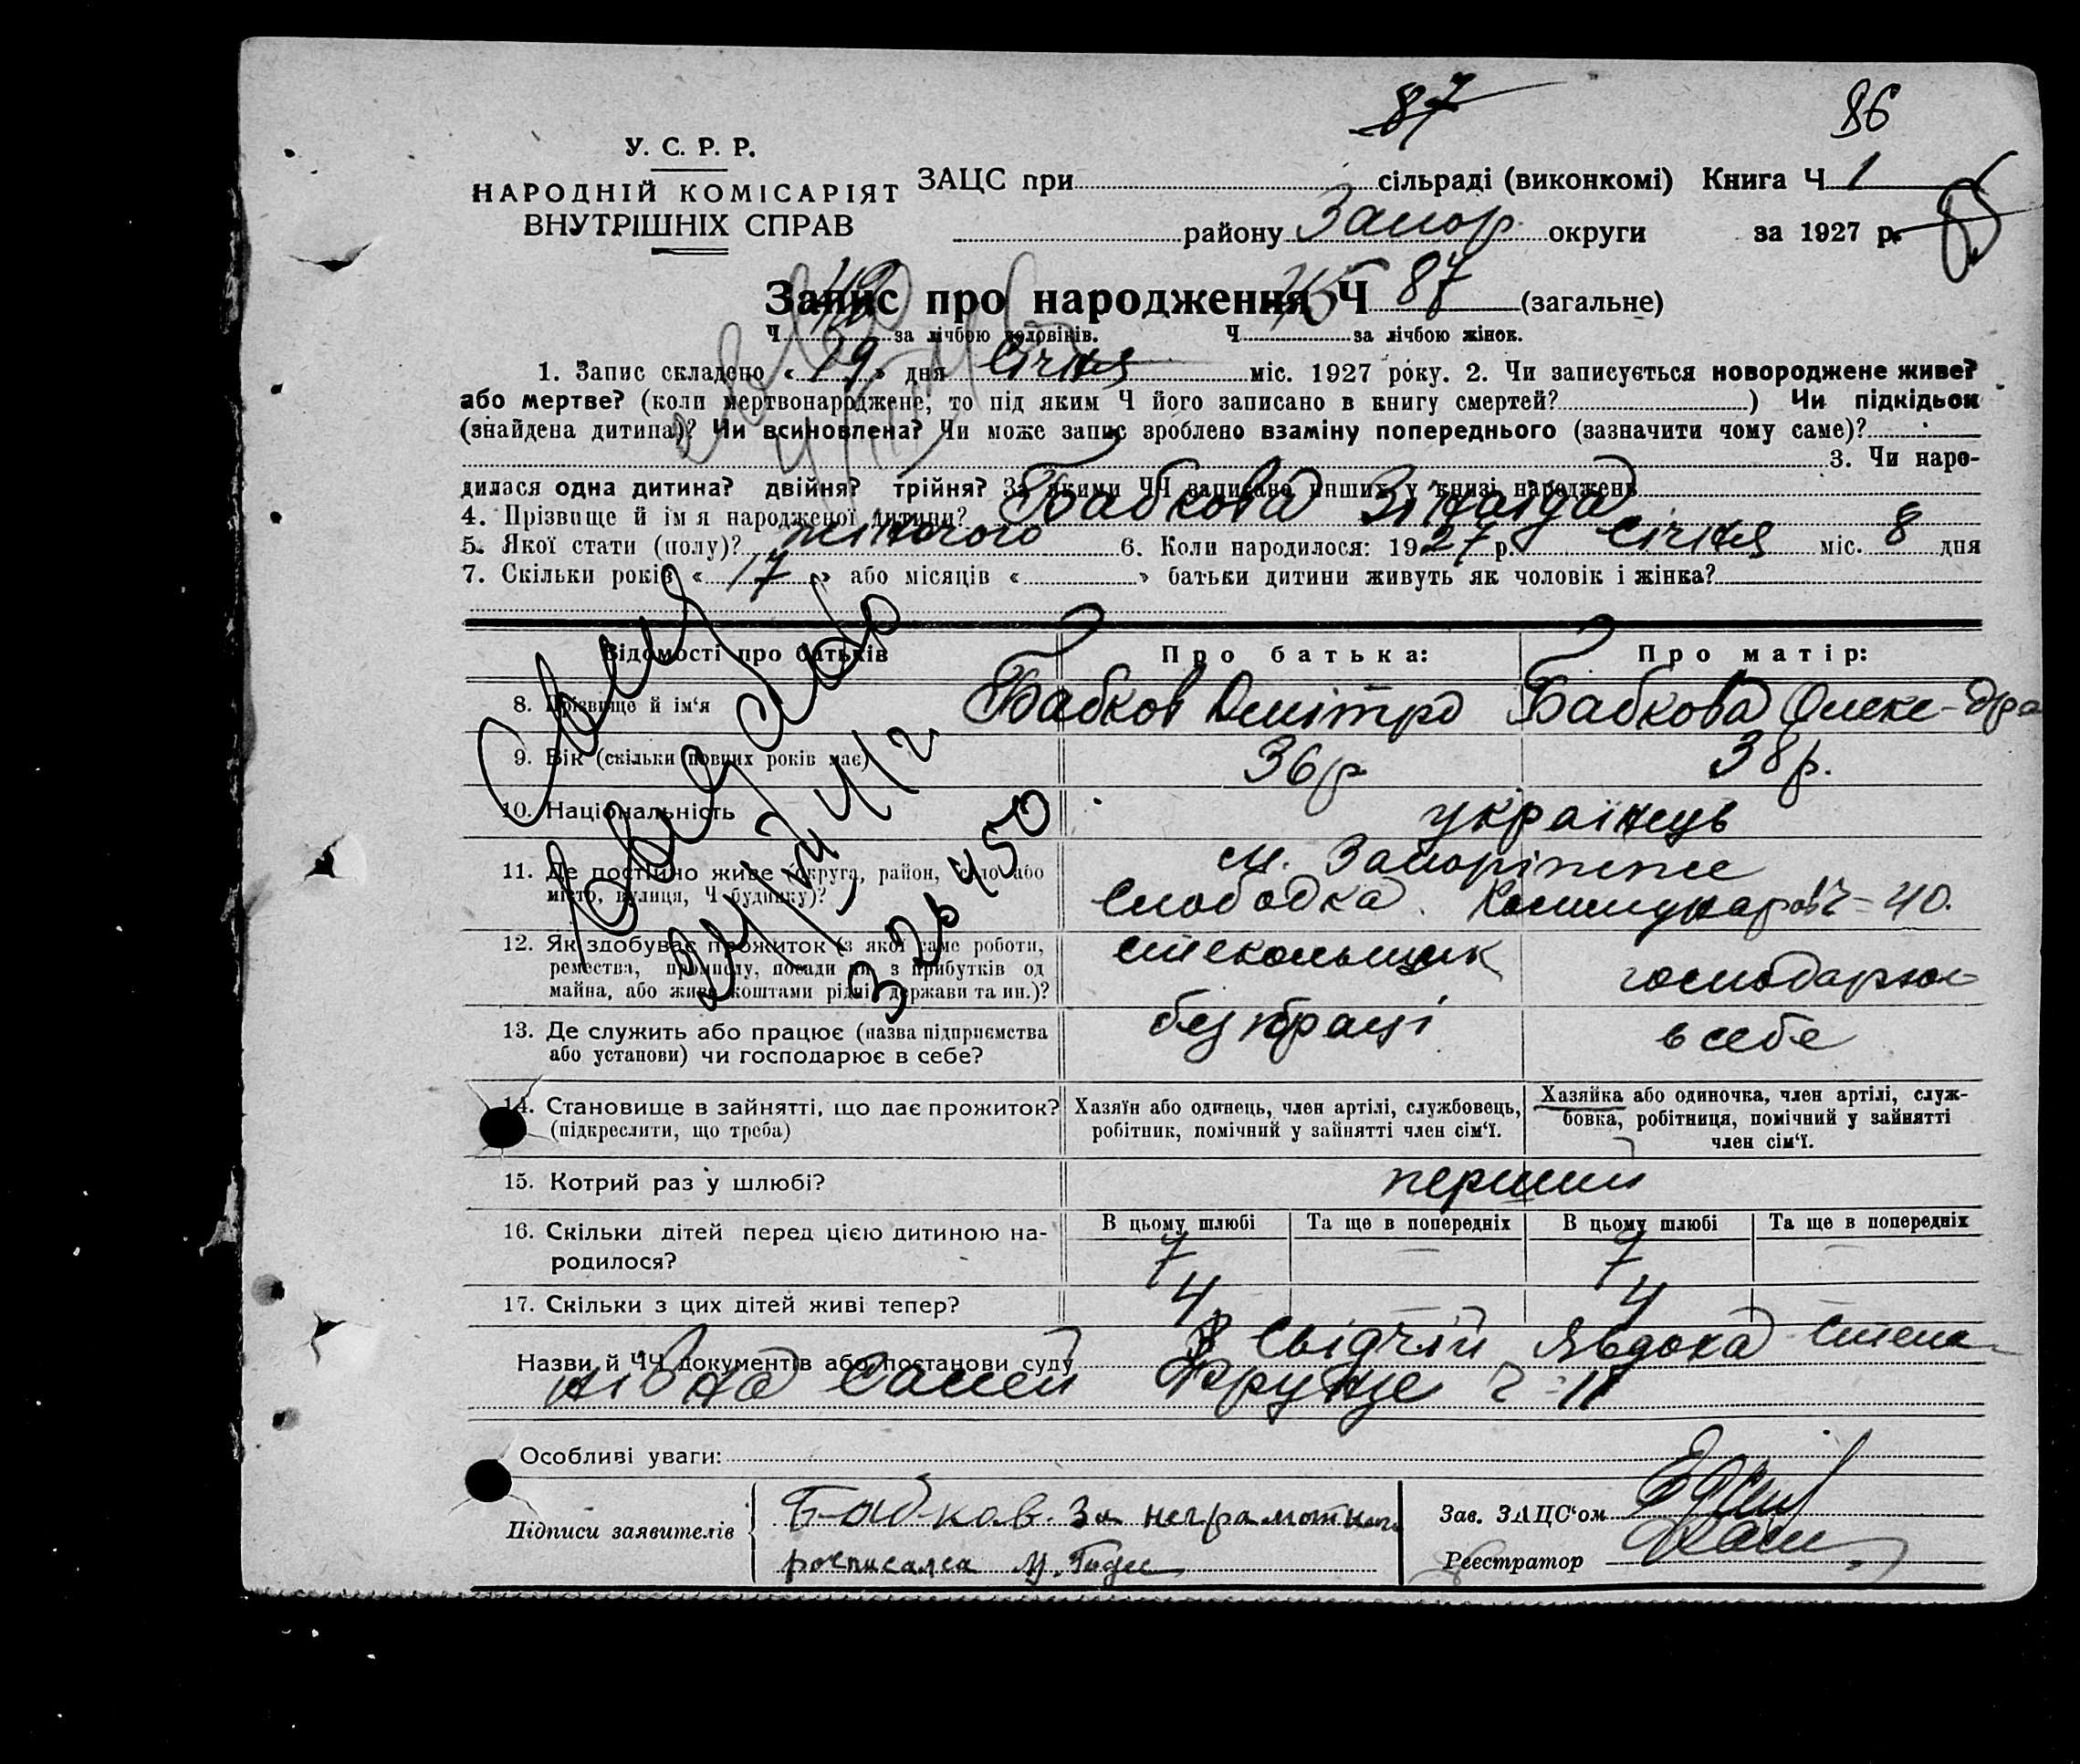 87
86
У. С. Р. Р.
НАРОДНІЙ КОМІСАРІЯТ
ВНУТРІШНІХ СПРАВ
ЗАЦС при сільраді (виконкомі) Книга Ч 1
району Запор. округи за 1927 р.
85
Запис про народження Ч 87 (загальне)
Ч за лічбою чоловіків. Ч за лічбою жінок.
1. Запис складено « 19 » дня Січня міс. 1927 року. 2. Чи записується новороджене живе?
або мертве? (коли мертвонароджене, то під яким Ч його записано в книгу смертей? ) Чи підкідьок
(знайдена дитина)? Чи всиновлена? Чи може запис зроблено взаміну попереднього (зазначити чому саме)?
3. Чи наро-
дилася одна дитина? двійня? трійня? За якими ЧЧ записано инших у книзі народжень
4. Прізвище й ім я народженої дитини? Бабкова Зінаїда
5. Якої стати (полу)? жіночого 6. Коли народилося: 1927 р. Січня міс. 8 дня
7. Скільки років « 17 » або місяців « » батьки дитини живуть як чоловік і жінка?
Відомості про батьків Про батька: Про матір:
8. Прізвище й ім‘я Бабков Дмітро Бабкова Олекс-дра
9. Вік (скільки повних років має) 36 р 38 р.
10. Національність українць
11. Де постійно живе (округа, район, село або місто, вулиця, Ч будинку)? м. Запоріжже
Слободка. Коммунаров Ч = 40.
12. Як здобуває прожиток (з якої саме роботи, ремества, промислу, посади чи з прибутків од майна, або живе коштами рідні, держави та ин.)? стекольщик господарює
13. Де служить або працює (назва підприємства або установи) чи господарює в себе? без праці в себе
14. Становище в зайнятті, що дає прожиток? (підкреслити, що треба)
Хазяїн або одинець, член артілі, службовець, робітник, помічний у зайнятті член сім‘ї.
Хазяйка або одиночка, член артілі, служ-
бовка, робітниця, помічний у зайнятті
член сім‘ї.
15. Котрий раз у шлюбі? перший
16. Скільки дітей перед цією дитиною на-
родилося?
В цьому шлюбі Та ще в попередніх В цьому шлюбі Та ще в попередніх
7 — 7 —
17. Скільки з цих дітей живі тепер? 4 — 4 —
Назви й ЧЧ документів або постанови суду Свідчій Явдоха Степа-
нівна Фрунзе Ч = 11
Особливі уваги:
Підписи заявителів Бабков. За неграмотного
росписалса
Зав. ЗАЦС‘ом
Реєстратор
24/IV 42
326450